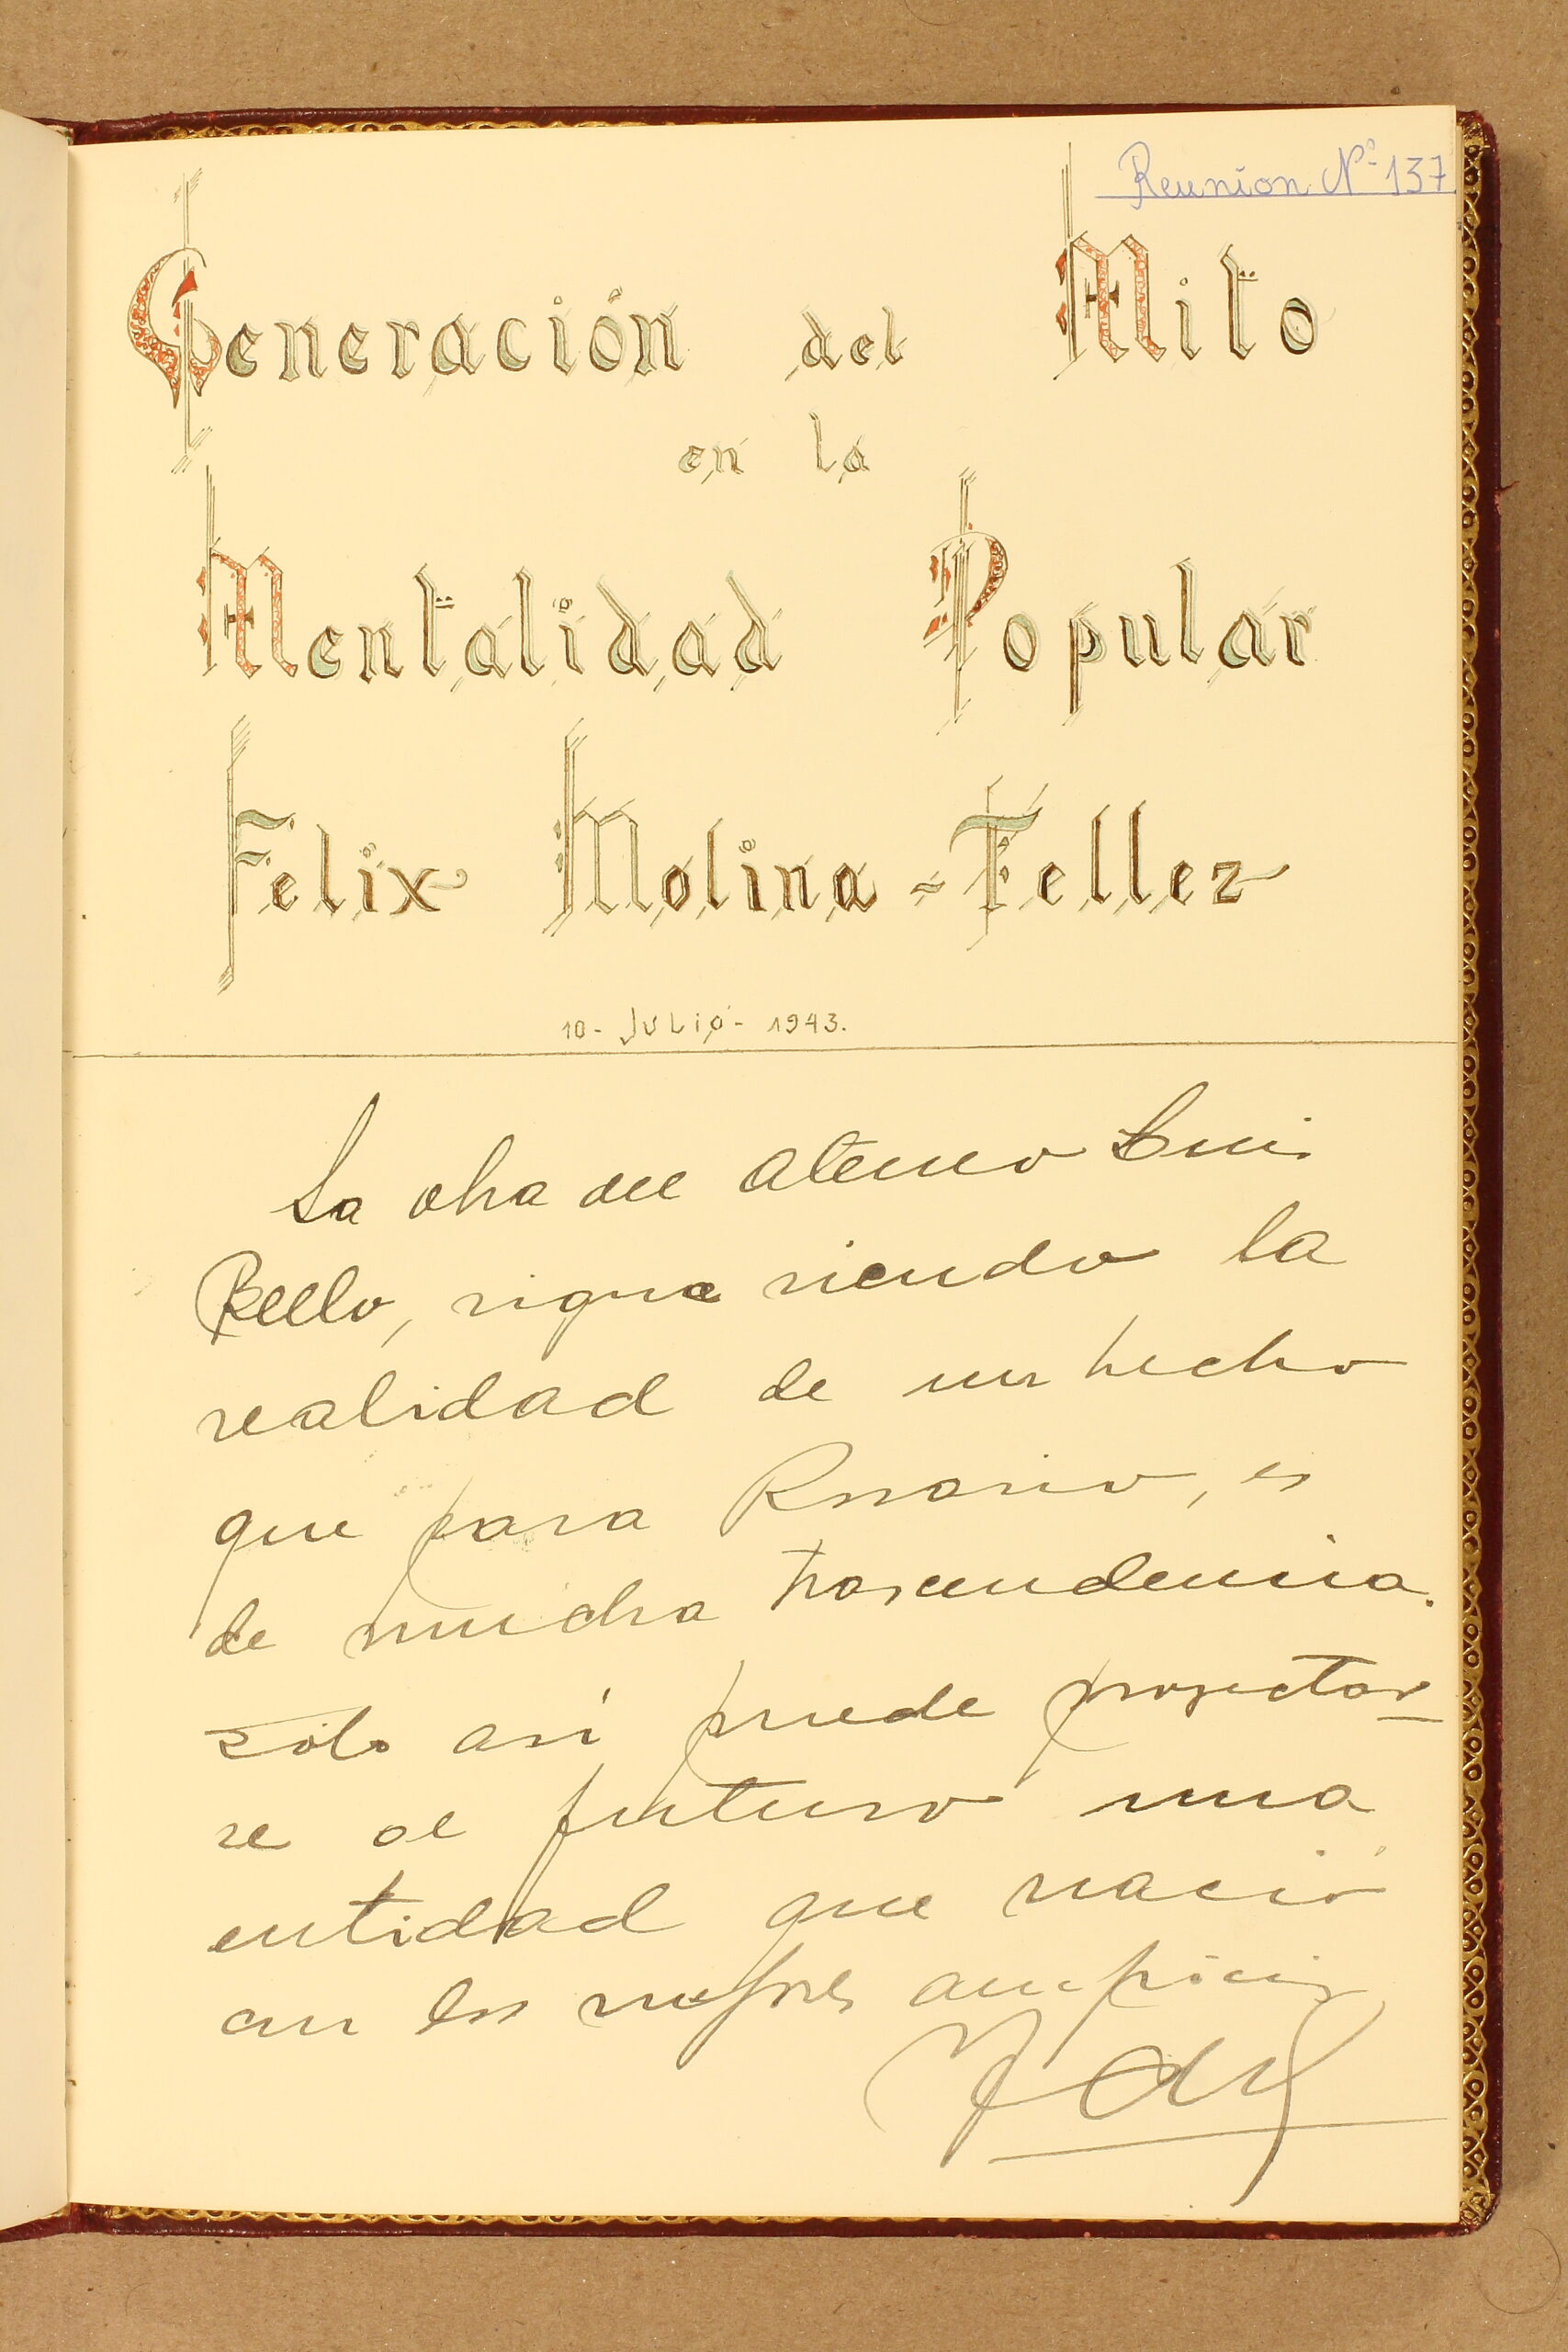 Reunion Nº 137
Generación del Mito
en la
Mentalidad Popular
Felix Molina-Tellez
10 - JULIO - 1943.
La obra del Ateneo Luis
Bello, sigue siendo la
realidad de un hecho
que para Rosario, es
de mucha trascendencia.
Sólo así puede proyectar
se al futuro una
entidad que nació
con los mejores auspicios